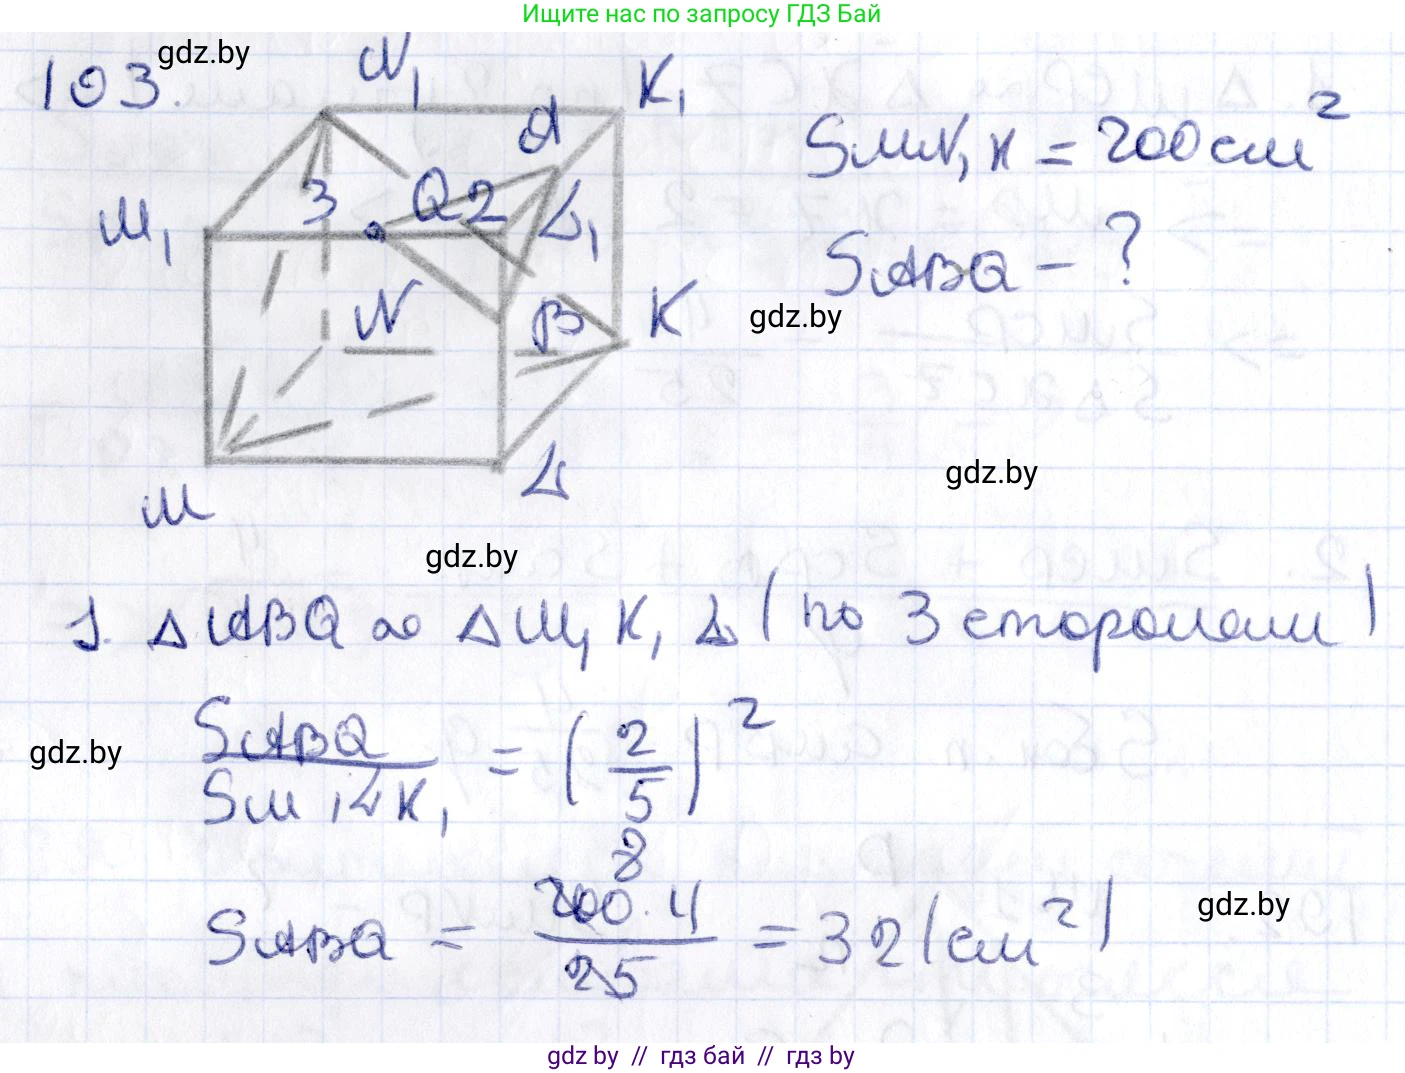 Ищите нас по запросу ГДЗ Бай
gdz.by
103.
N₁
K₁
A
M₁
3
Q
2
L₁
N
B
K
M
L
SMN₁K = 200 см²
SABQ - ?
gdz.by
gdz.by
gdz.by
1. △ABQ ∾ △M₁K₁L (по 3 сторонам)
gdz.by
SABQ / SM₁LK₁ = (2/5)²
8
SABQ = 200·4 / 25 = 32 (см²)
gdz.by
gdz by // гдз бай // гдз by